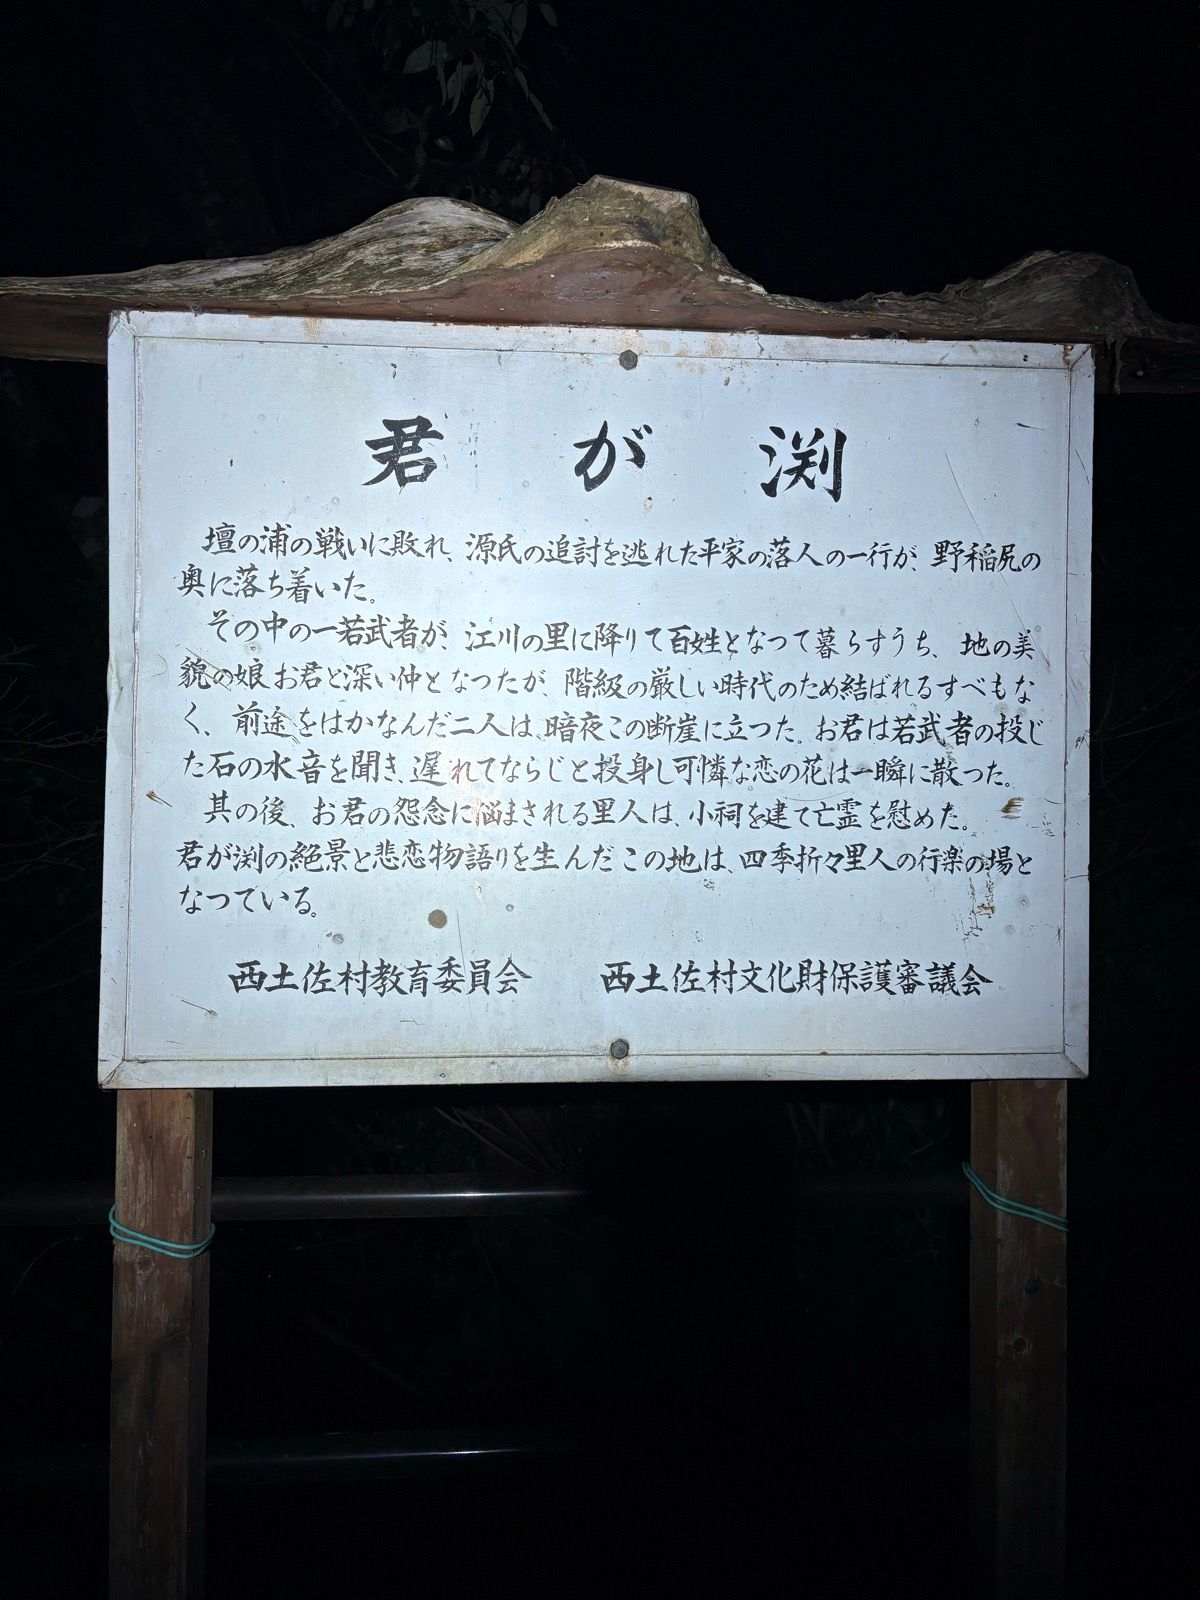 君が渕
壇の浦の戦いに敗れ、源氏の追討を逃れた平家の落人の一行が、野稲尻の
奥に落ち着いた。
その中の一若武者が、江川の里に降りて百姓となって暮らすうち、地の美
貌の娘お君と深い仲となったが、階級の厳しい時代のため結ばれるすべもな
く、前途をはかなんだ二人は、暗夜この断崖に立つた。お君は若武者の投じ
た石の水音を聞き、遅れてならじと投身し可憐な恋の花は一瞬に散った。
其の後、お君の怨念に悩まされる里人は、小祠を建て亡霊を慰めた。
君が渕の絶景と悲恋物語りを生んだこの地は、四季折々里人の行楽の場と
なっている。
西土佐村教育委員会 西土佐村文化財保護審議会